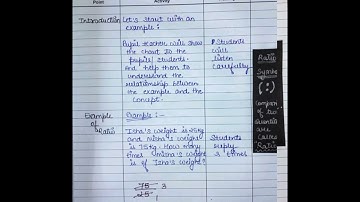 Point
Activity
Introduction
Let's start with an
example:
Pupil teacher will show
the chart to the
pupils/ students.
And help them to
understand the
relationship between
the example and the
concept.
Students
will
listen
carefully
Example
of
Ratio
Example :-
Isha's weight is 25kg
and Nisha's weight
is 75kg. How many
times Nisha's weight
is of Isha's weight?
Students
reply
3 times
75 3
25
1
Ratio
Symbol
(:)
Comparison
of two
quantities
are
called
"Ratio"